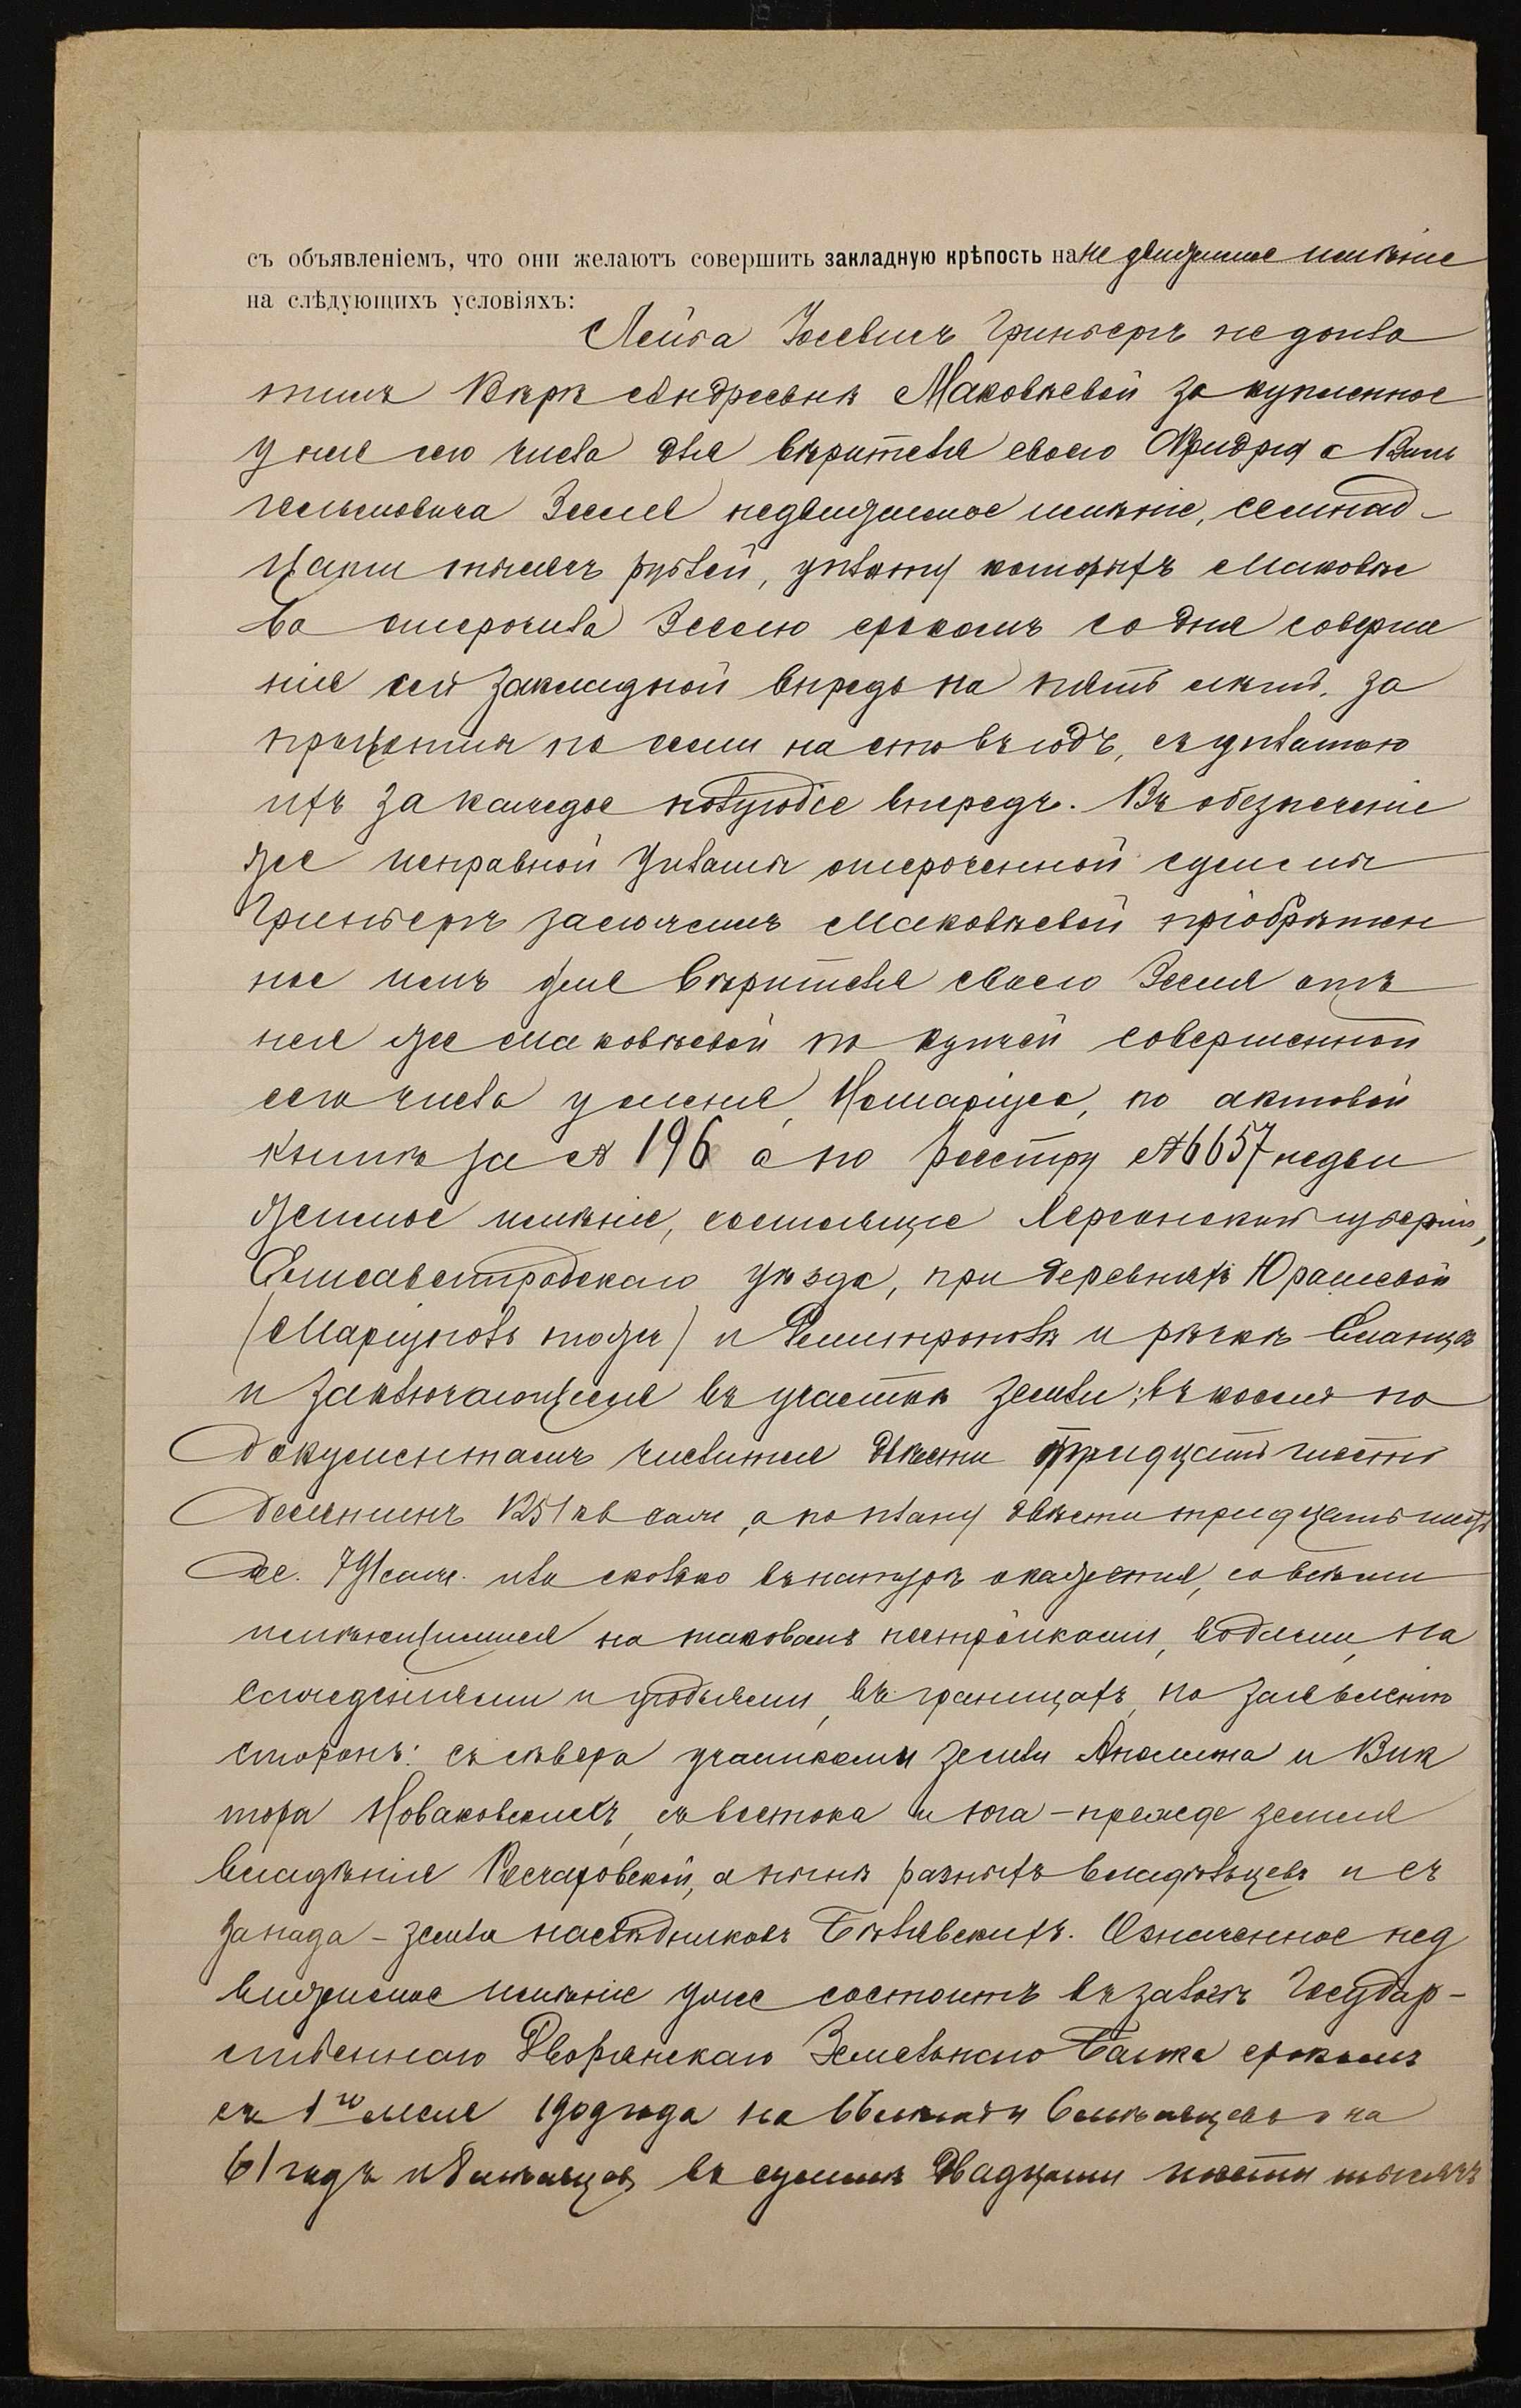 съ объявленіемъ, что они желаютъ совершить закладную крѣпость на не движимое имѣніе
на слѣдующихъ условіяхъ:
Лейба Іосевичъ Гринбергъ недопла
тилъ Вѣрѣ Андреевнѣ Маковѣевой за купленное
у нея сего числа для вѣрителя своего Фридриха Виль
гельмовича Зееле недвижимое имѣніе, семнад-
цати тысячъ рублей, уплату которыхъ Маковѣе
ва отсрочила Зееле срокомъ со дня соверше
нія сей закладной впредь на пять лѣтъ, за
проценты по семи на сто въ годъ, съ уплатою
ихъ за каждое полугодіе впередъ. Въ обезпеченіе
же исправной уплаты отсроченной суммы
Гринбергъ заложилъ Маковѣевой пріобрѣтен
ное имъ для вѣрителя своего Зееле отъ
нея же Маковѣевой по купчей совершенной
сего числа у меня, Нотаріуса, по актовой
книгѣ за № 196 а по реестру № 6657 недви
жимое имѣніе, состоящее Херсонской губерніи,
Елисаветградскаго уѣзда, при деревняхъ Юрашевой
(Маріуполь тожъ) и и рѣчкѣ
и заключающееся въ участкѣ земли; въ коемъ по
документамъ числится двѣсти тридцать шесть
десятинъ 1251 кв саж, а по плану двѣсти тридцать шесть
дес. 791 саж. или сколько въ натурѣ окажется, со всѣми
имѣющимися на таковомъ постройками, водами, на
сажденіями и угодьями, въ границахъ, по заявленію
сторонъ: съ сѣвера участками земли и Вик
тора Новаковскихъ, съ востока и юга - прежде земля
владѣнія а нынѣ разныхъ владѣльцевъ и съ
запада - земли наслѣдниковъ Бѣлявскихъ. Означенное нед
вижимое имѣніе уже состоитъ въ залогѣ Государ-
ственнаго Дворянскаго Земельнаго Банка срокомъ
съ 1го Мая 1909 года на 66 лѣтъ и 6 мѣсяцевъ и на
61 годъ и 8 мѣсяцевъ въ суммѣ двадцати шести тысячъ